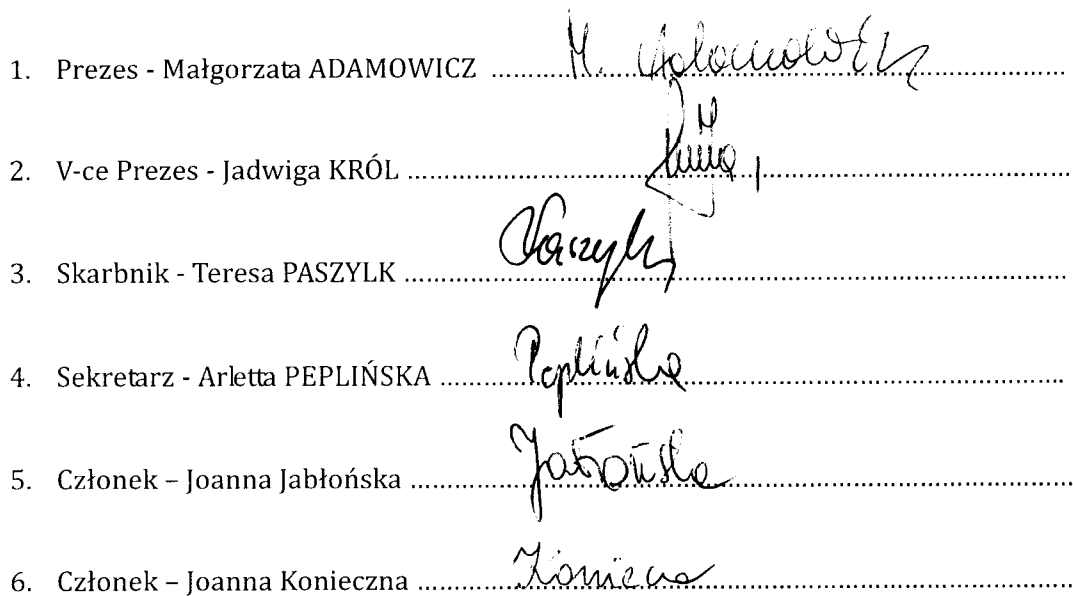 1. Prezes - Małgorzata ADAMOWICZ .......... M. Adamowicz
2. V-ce Prezes - Jadwiga KRÓL ..........
3. Skarbnik - Teresa PASZYLK .......... Paszylk
4. Sekretarz - Arletta PEPLIŃSKA .......... Peplińska
5. Członek – Joanna Jabłońska .......... Jabłońska
6. Członek – Joanna Konieczna ..........